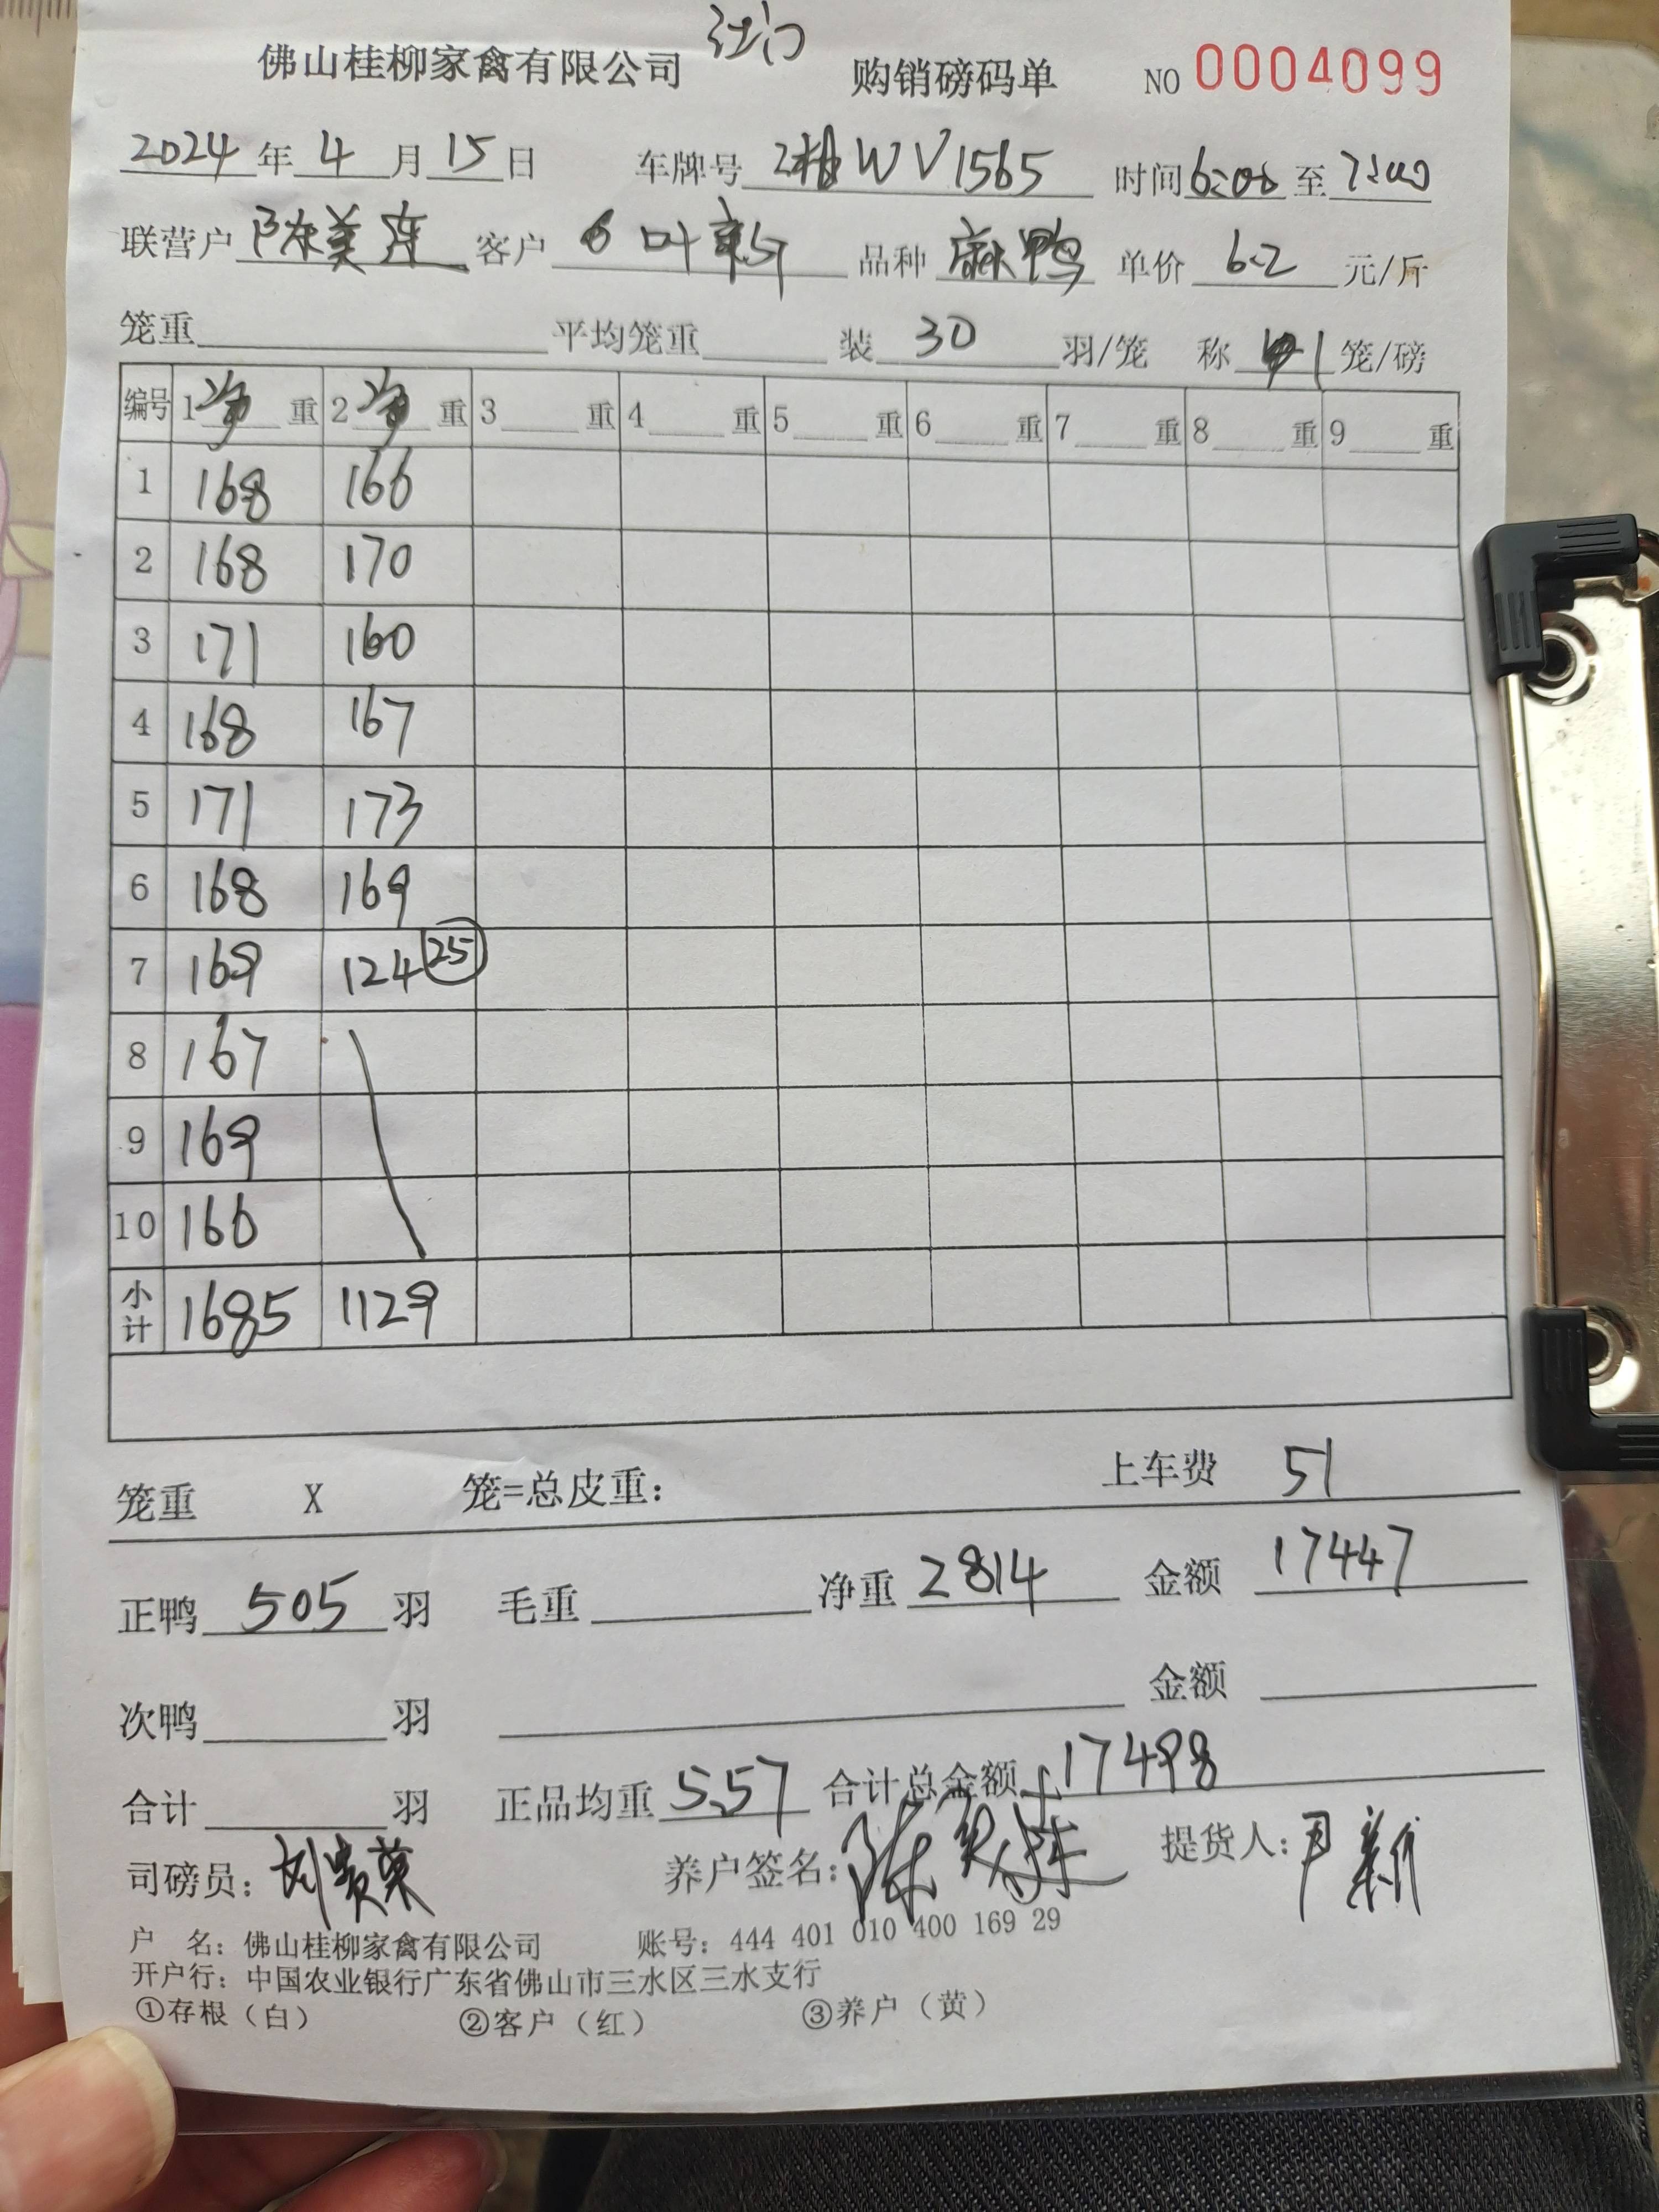 江门
佛山桂柳家禽有限公司 购销磅码单 NO 0004099
2024 年 4 月 15 日 车牌号 WV1565 时间 6:00 至 7:00
联营户 陈美莲 客户 叶新 品种 麻鸭 单价 6.2 元/斤
笼重 平均笼重 装 30 羽/笼 称 1 笼/磅
编号 1 净 重 2 净 重 3 重 4 重 5 重 6 重 7 重 8 重 9 重
1 168 166
2 168 170
3 171 160
4 168 167
5 171 173
6 168 169
7 169 124 25
8 167
9 169
10 166
小计 1685 1129
笼重 X 笼=总皮重： 上车费 51
正鸭 505 羽 毛重 净重 2814 金额 17447
次鸭 羽 金额
合计 羽 正品均重 5.57 合计总金额 17498
司磅员：刘贵荣 养户签名：陈美莲 提货人：
户 名：佛山桂柳家禽有限公司 账号：444 401 010 400 169 29
开户行：中国农业银行广东省佛山市三水区三水支行
①存根（白） ②客户（红） ③养户（黄）